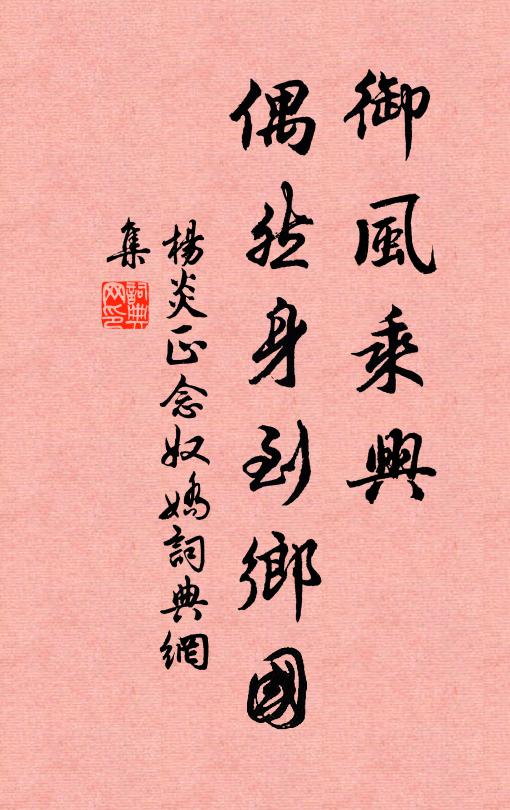 御風乘興
偶然身到鄉國
楊炎正念奴嬌詞典網
集
詞典網印